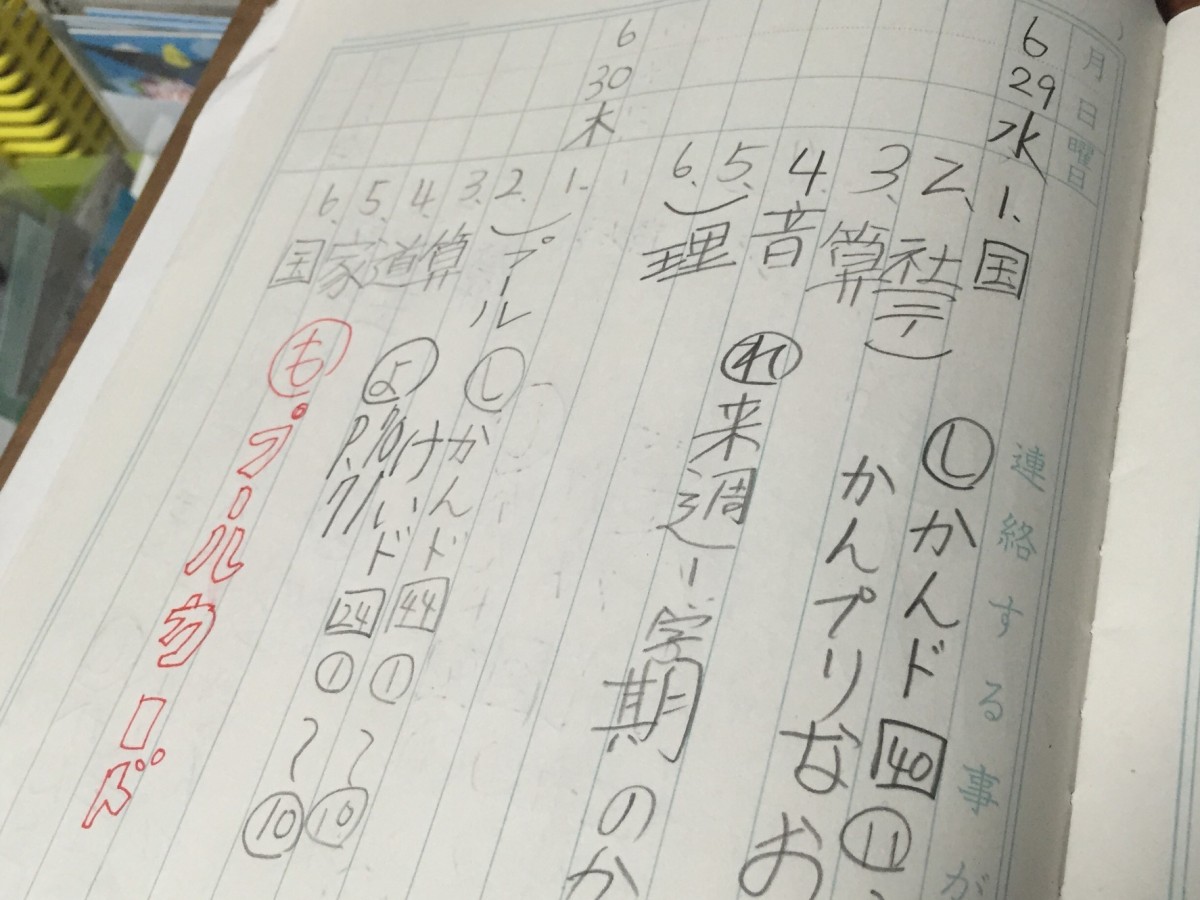 月 日 曜日
連絡する事が
6 29 水
1. 国
2. 社(テ)
3. 算
4. 音
5. 6. 理
しかんド40 11
かんプリなお
れ来週1学期のか
6 30 木
1.
2. プール
3. 算
4. 道
5. 家
6. 国
しかんド44 ①〜⑩
けいド24 ①〜⑩
よP.70 P.71
もプールカード